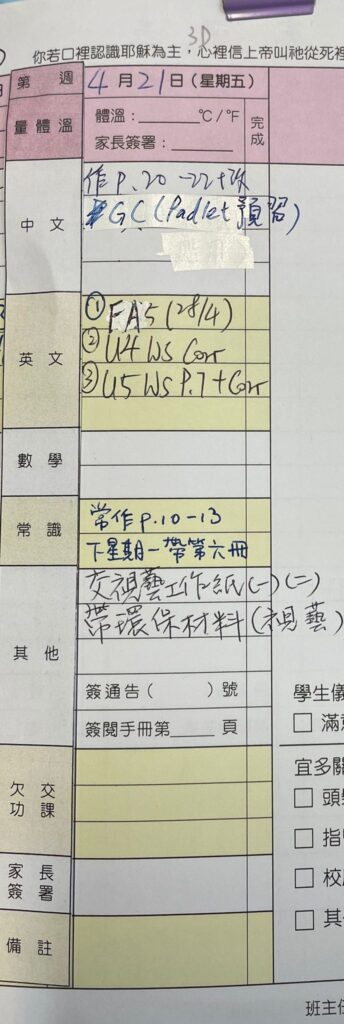 3D
你若口裡認識耶穌為主，心裡信上帝叫祂從死裡
第 週 4月21日(星期五)
量體溫 體溫：______°C/°F 完成
家長簽署：______
中文 作 P.20-22+改
#GC (Padlet預習)
英文 ① FA5 (28/4)
② U4 WS Corr
③ U5 WS P.7 + Corr
數學
常識 常作 P.10-13
下星期一帶第六冊
其他 交視藝工作紙(一)(二)
帶環保材料(視藝)
簽通告( )號
簽閱手冊第____頁
學生儀
□ 滿意
欠交功課
宜多關
□ 頭髮
□ 指甲
□ 校
家長簽署
□ 其
備註
班主任